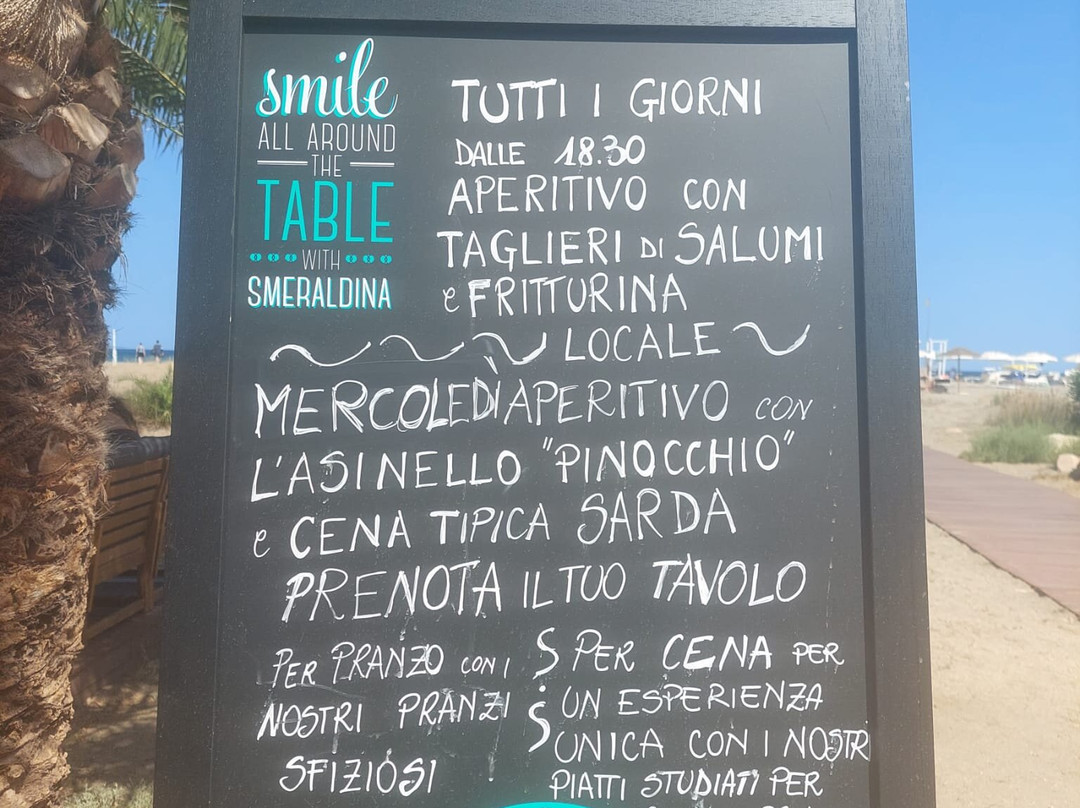 smile
ALL AROUND
THE
TABLE
WITH
SMERALDINA
TUTTI I GIORNI
DALLE 18.30
APERITIVO CON
TAGLIERI DI SALUMI
e FRITTURINA
LOCALE
MERCOLEDÌ APERITIVO CON
L'ASINELLO "PINOCCHIO"
e CENA TIPICA SARDA
PRENOTA IL TUO TAVOLO
PER PRANZO CON I
NOSTRI PRANZI
SFIZIOSI
PER CENA PER
UN ESPERIENZA
UNICA CON I NOSTRI
PIATTI STUDIATI PER